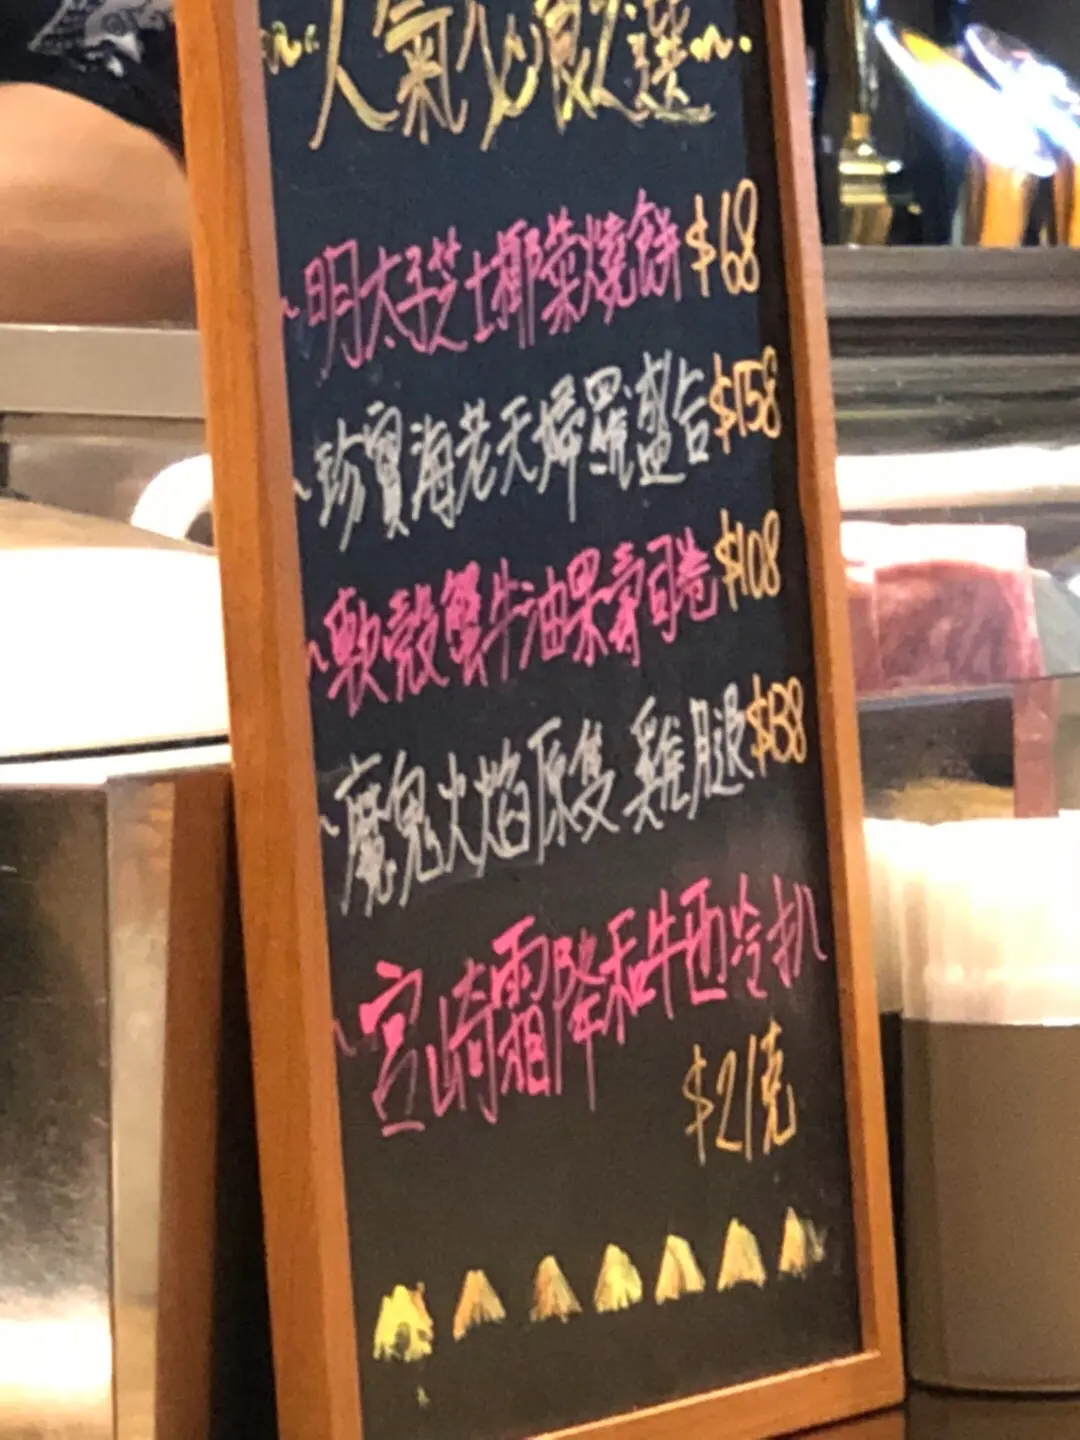 人氣必飲選
明太子芝士椰菜燒餅 $68
珍寶海老天婦羅盛合 $158
軟殼蟹牛油果壽司卷 $108
魔鬼火焰原隻雞腿 $138
宮崎霜降和牛西冷扒
$21克